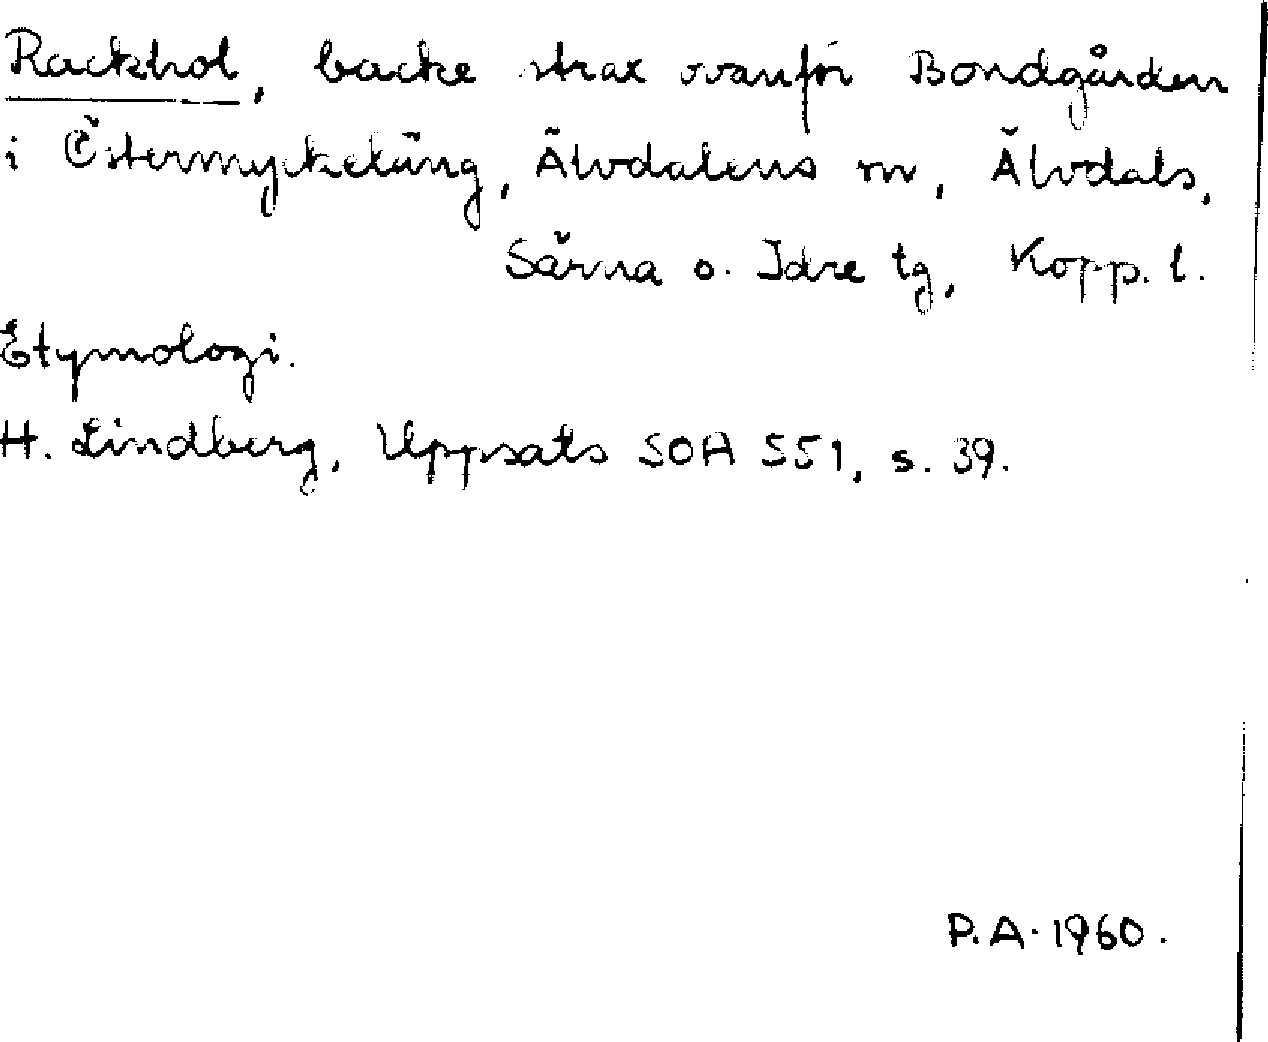 Rackhol, backe strax ovanför Bondgården
i Östermyckeläng, Älvdalens sn, Älvdals,
Särna o. Idre tg, Kopp. l.
Etymologi.
H. Lindberg, Uppsats SOA 551, s. 39.
P.A. 1960.